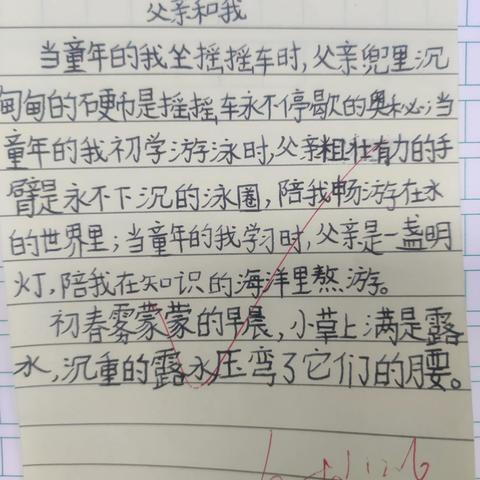 父亲和我
当童年的我坐摇摇车时,父亲兜里沉
甸甸的硬币是摇摇车永不停歇的奥秘;当
童年的我初学游泳时,父亲粗壮有力的手
臂是永不下沉的泳圈,陪我畅游在水
的世界里;当童年的我学习时,父亲是一盏明
灯,陪我在知识的海洋里熬游。
初春雾蒙蒙的早晨,小草上满是露
水,沉重的露水压弯了它们的腰。